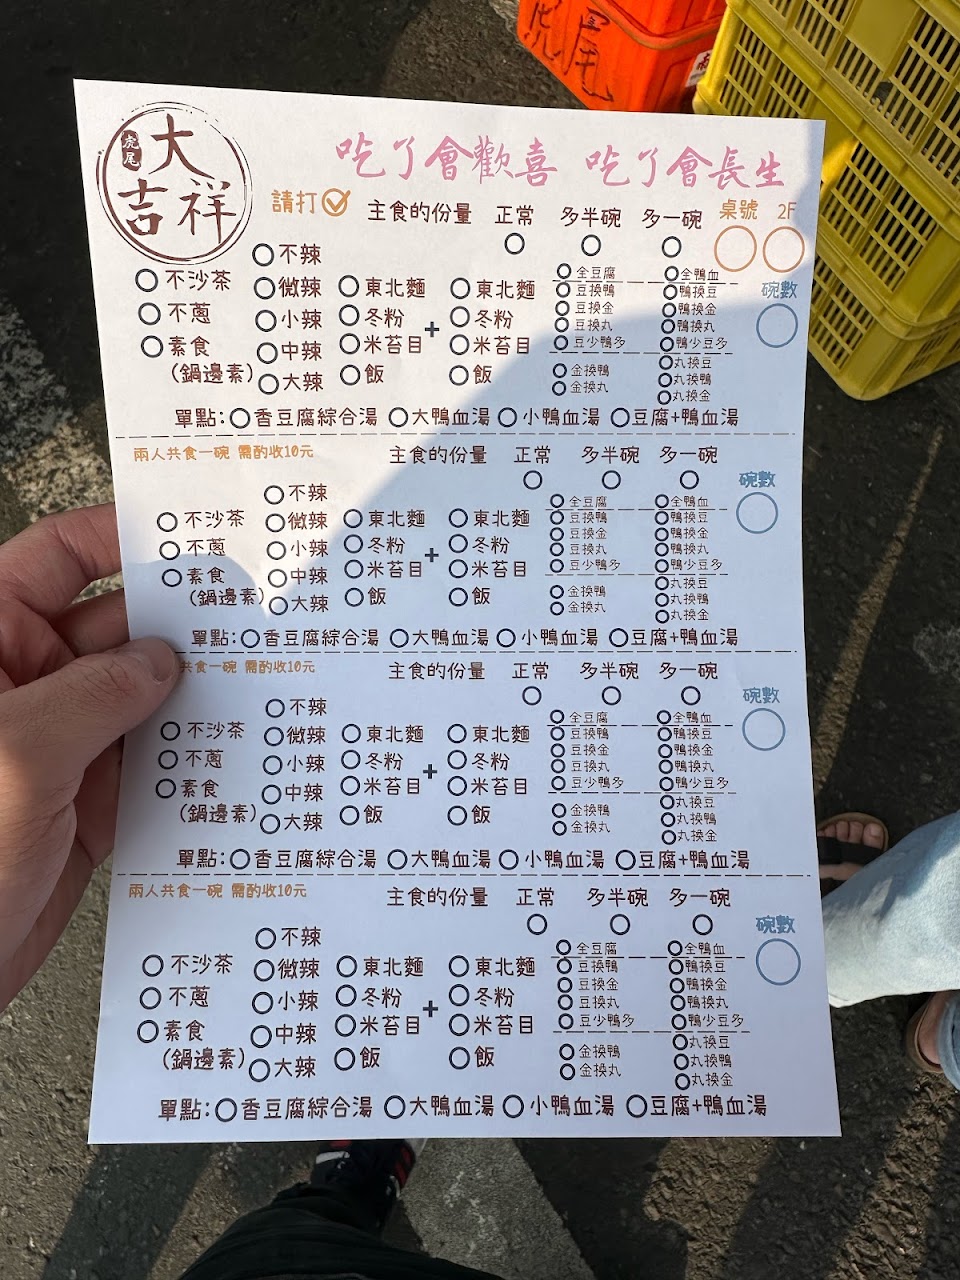 虎尾
虎尾
大吉祥
吃了會歡喜 吃了會長生
請打 主食的份量 正常 多半碗 多一碗 桌號 2F
不辣
不沙茶 微辣 東北麵 + 東北麵 全豆腐 全鴨血 碗數
不蔥 小辣 冬粉 冬粉 豆換鴨 鴨換豆
素食 中辣 米苔目 米苔目 豆換金 鴨換金
(鍋邊素) 大辣 飯 飯 豆換丸 鴨換丸
豆少鴨多 鴨少豆多
金換鴨 丸換豆
金換丸 丸換鴨
丸換金
單點: 香豆腐綜合湯 大鴨血湯 小鴨血湯 豆腐+鴨血湯
兩人共食一碗 需酌收10元 主食的份量 正常 多半碗 多一碗
不辣 碗數
不沙茶 微辣 東北麵 + 東北麵 全豆腐 全鴨血
不蔥 小辣 冬粉 冬粉 豆換鴨 鴨換豆
素食 中辣 米苔目 米苔目 豆換金 鴨換金
(鍋邊素) 大辣 飯 飯 豆換丸 鴨換丸
豆少鴨多 鴨少豆多
金換鴨 丸換豆
金換丸 丸換鴨
丸換金
單點: 香豆腐綜合湯 大鴨血湯 小鴨血湯 豆腐+鴨血湯
共食一碗 需酌收10元 主食的份量 正常 多半碗 多一碗
不辣 碗數
不沙茶 微辣 東北麵 + 東北麵 全豆腐 全鴨血
不蔥 小辣 冬粉 冬粉 豆換鴨 鴨換豆
素食 中辣 米苔目 米苔目 豆換金 鴨換金
(鍋邊素) 大辣 飯 飯 豆換丸 鴨換丸
豆少鴨多 鴨少豆多
金換鴨 丸換豆
金換丸 丸換鴨
丸換金
單點: 香豆腐綜合湯 大鴨血湯 小鴨血湯 豆腐+鴨血湯
兩人共食一碗 需酌收10元 主食的份量 正常 多半碗 多一碗
不辣 碗數
不沙茶 微辣 東北麵 + 東北麵 全豆腐 全鴨血
不蔥 小辣 冬粉 冬粉 豆換鴨 鴨換豆
素食 中辣 米苔目 米苔目 豆換金 鴨換金
(鍋邊素) 大辣 飯 飯 豆換丸 鴨換丸
豆少鴨多 鴨少豆多
金換鴨 丸換豆
金換丸 丸換鴨
丸換金
單點: 香豆腐綜合湯 大鴨血湯 小鴨血湯 豆腐+鴨血湯